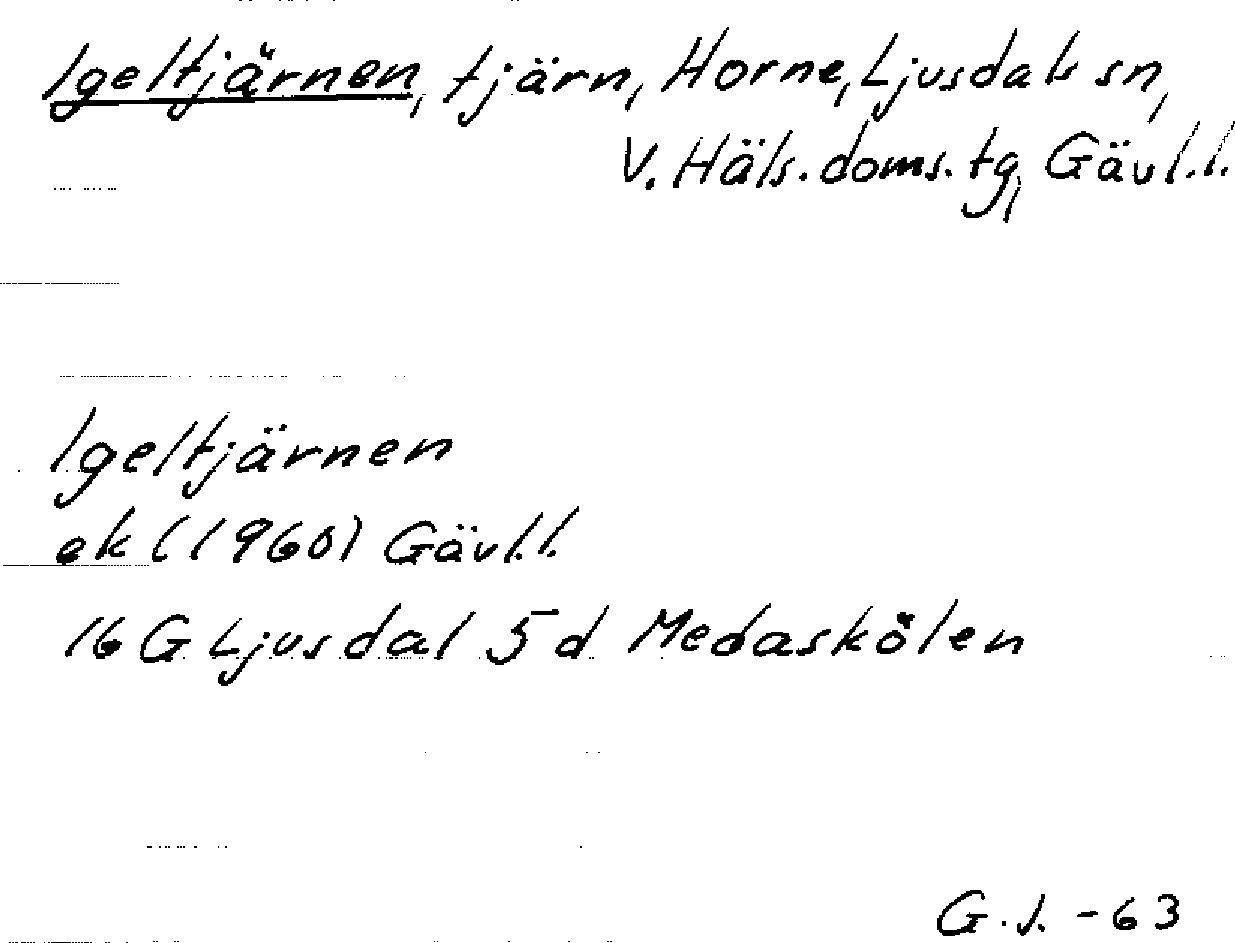 Igeltjärnen, tjärn, Horne, Ljusdals sn,
V. Häls. doms. tg, Gävl.l.
Igeltjärnen
ek (1960) Gävl.l.
16 G Ljusdal 5 d Medaskölen
G.J. -63